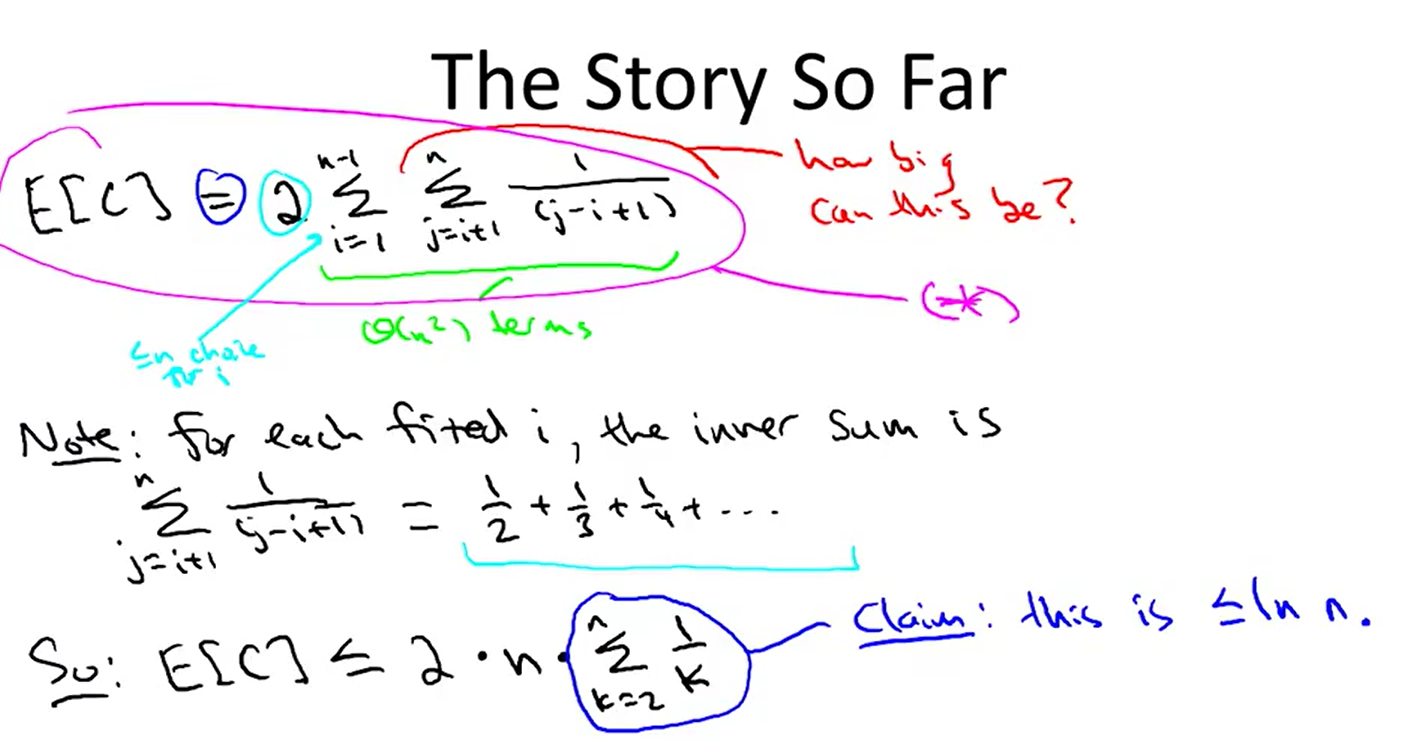 The Story So Far
E[C] = 2 \sum_{i=1}^{n-1} \sum_{j=i+1}^{n} \frac{1}{(j-i+1)}
how big
can this be?
(*)
Θ(n²) terms
≤n choice
for i
Note: for each fixed i, the inner sum is
\sum_{j=i+1}^{n} \frac{1}{(j-i+1)} = \frac{1}{2} + \frac{1}{3} + \frac{1}{4} + ...
Claim: this is ≤ ln n.
So: E[C] ≤ 2 · n · \sum_{k=2}^{n} \frac{1}{k}